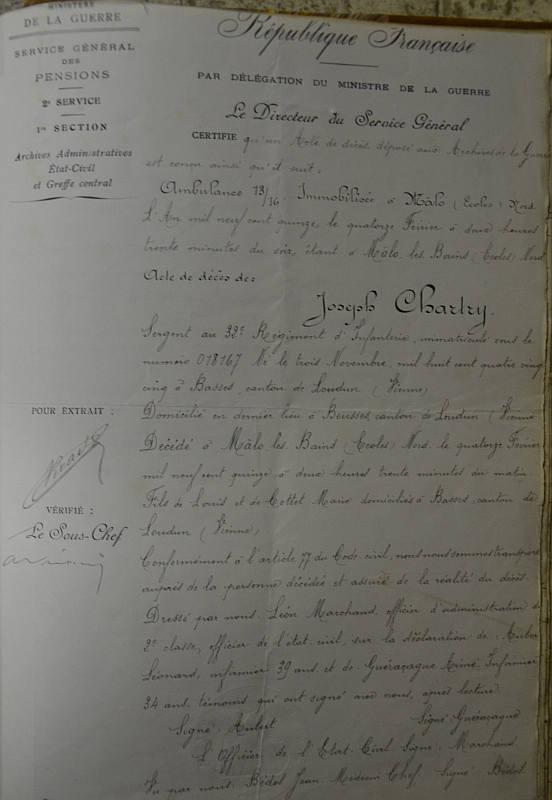 MINISTÈRE
DE LA GUERRE
SERVICE GÉNÉRAL
DES
PENSIONS
2e SERVICE
1re SECTION
Archives Administratives
État-Civil
et Greffe central
République Française
PAR DÉLÉGATION DU MINISTRE DE LA GUERRE
Le Directeur du Service Général
CERTIFIE qu'un Acte de décès déposé aux Archives de la Guerre
est conçu ainsi qu'il suit:
Ambulance 13/16 Immobilisée à Mâlo (Ecoles) Nord.
L'An mil neuf cent quinze, le quatorze Fevrier à deux heures
trente minutes du soir, étant à Mâlo les Bains (Ecoles) Nord
Acte de décès de:
Joseph Chartry.
Sergent au 32e Régiment d'Infanterie, immatriculé sous le
numéro 018167 Né le trois Novembre, mil huit cent quatre vingt
cinq à Basses, canton de Loudun (Vienne)
Domicilié en dernier lieu à Beusses, canton de Loudun (Vienne
Décédé à Mâlo les Bains (Ecoles) Nord, le quatorze Fevrier
mil neuf cent quinze, à deux heures trente minutes du matin
Fils de Louis et de Cottet Marie domiciliés à Basses, canton de
Loudun (Vienne)
Conformément à l'article 77 du Code civil, nous nous sommes transporté
auprès de la personne décédée et assuré de la réalité du décès.
Dressé par nous Léon Marchand, officier d'administration de
2e classe, officier de l'état-civil, sur la déclaration de Aubert
Léonard, infirmier 39 ans et de Guéracague Aimé Infirmier
34 ans, témoins qui ont signé avec nous, après lecture
Signé: Aubert Signé Guéracague
L'Officier de l'Etat-Civil Signé: Marchand
Vu par nous: Bédos Jean Médecin Chef, Signé: Bédos
POUR EXTRAIT :
VÉRIFIÉ :
Le Sous-Chef